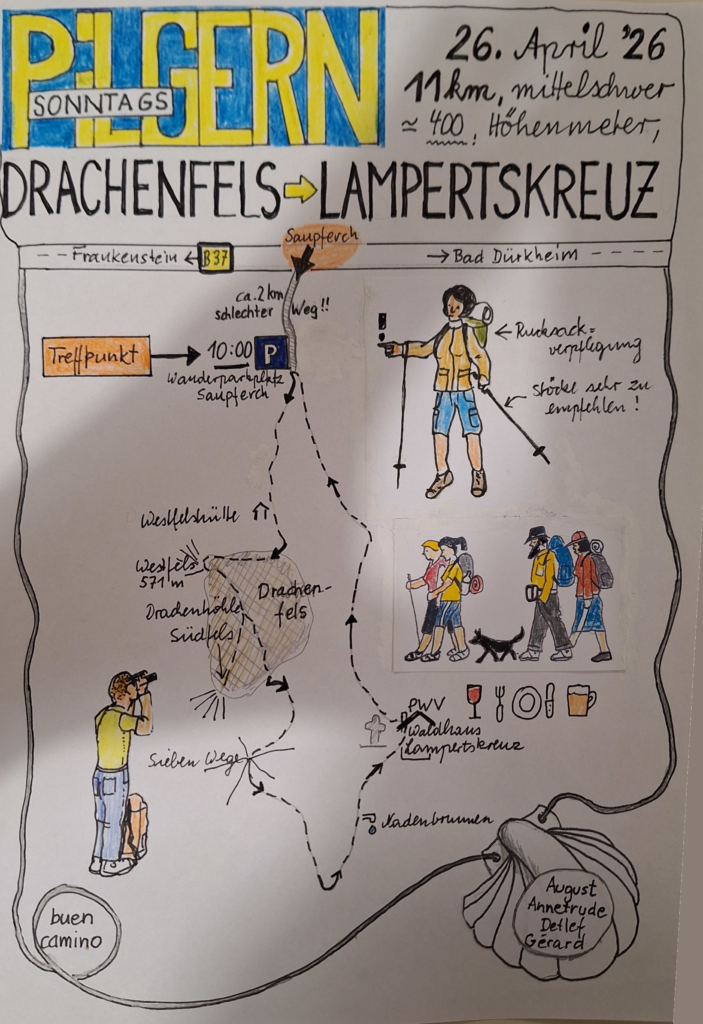 PILGERN
SONNTAGS
26. April '26
11 km, mittelschwer
≈ 400 Höhenmeter,
DRACHENFELS ⇨ LAMPERTSKREUZ
Saupferch
Frankenstein ← B37
→ Bad Dürkheim
ca. 2 km
schlechter Weg!!
Treffpunkt → 10:00 P
Wanderparkplatz
Saupferch
← Rucksack=
verpflegung
Stöcke sehr zu
empfehlen!
Westfelshütte
Westfels
571 m
Drachen-
fels
Drachenhöhle
Südfels
PWV
Waldhaus
Lampertskreuz
Sieben Wege
Nadenbrunnen
buen
camino
August
Annetrude
Detlef
Gérard